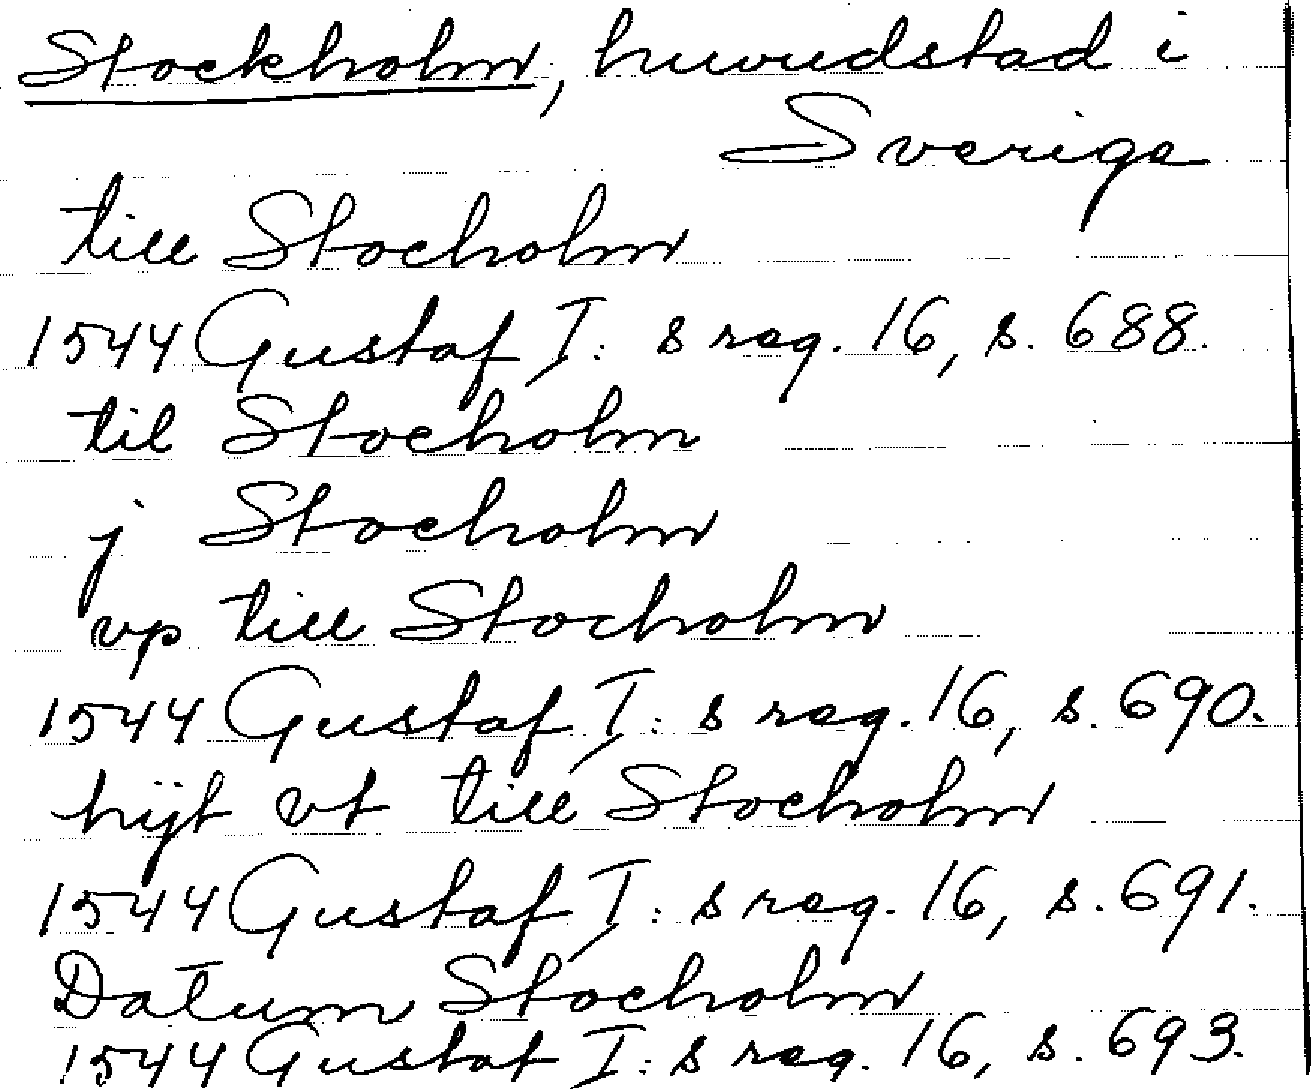 Stockholm, huvudstad i
Sverige
till Stocholm
1544 Gustaf I:s reg. 16, s. 688.
til Stocholm
j Stocholm
vp till Stocholm
1544 Gustaf I:s reg. 16, s. 690.
hijt vt till Stocholm
1544 Gustaf I:s reg. 16, s. 691.
Datum Stocholm
1544 Gustaf I:s reg. 16, s. 693.